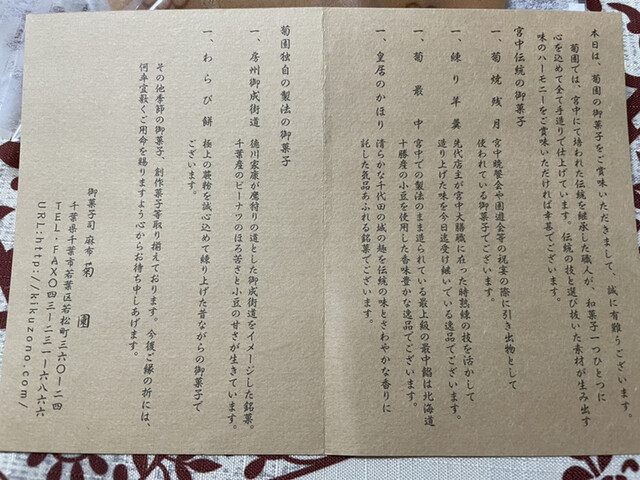 本日は、菊園の御菓子をご賞味いただきまして、誠に有難うございます。
菊園では、宮中にて培われた伝統を継承した職人が、和菓子一つひとつに
心を込めて全て手造りで仕上げています。伝統の技と選び抜いた素材が生み出す
味のハーモニーをご賞味いただければ幸甚でございます。
宮中伝統の御菓子
一、菊焼残月 宮中晩餐会や園遊会等の祝宴の際に引き出物として
使われている御菓子でございます。
一、練り羊羹 先代店主が宮中大膳職に在った時熟練の技を活かして
造り上げた味を今日迄受け継いでいる逸品でございます。
一、菊最中 宮中での製法のまま造られている最上級の最中餡は北海道
十勝産の小豆を使用した香味豊かな逸品でございます。
一、皇居のかほり 清らかな千代田の城の趣を伝統の味とさわやかな香りに
託した気品あふれる銘菓でございます。
菊園独自の製法の御菓子
一、房州御成街道 徳川家康が鷹狩りの道とした御成街道をイメージした銘菓。
千葉産のピーナツのほろ苦さと小豆の甘さが生きています。
一、わらび餅 極上の蕨粉を誠心込めて練り上げた昔ながらの御菓子で
ございます。
その他季節の御菓子、創作菓子等取り揃えております。今後ご縁の折には、
何卒宜敷くご用命を賜りますよう心からお待ち申しあげます。
御菓子司 麻布 菊園
千葉県千葉市若葉区若松町三六〇ー二四
TEL・FAX〇四三ー二三一ー六八六六
URL:http://kikuzono.com/